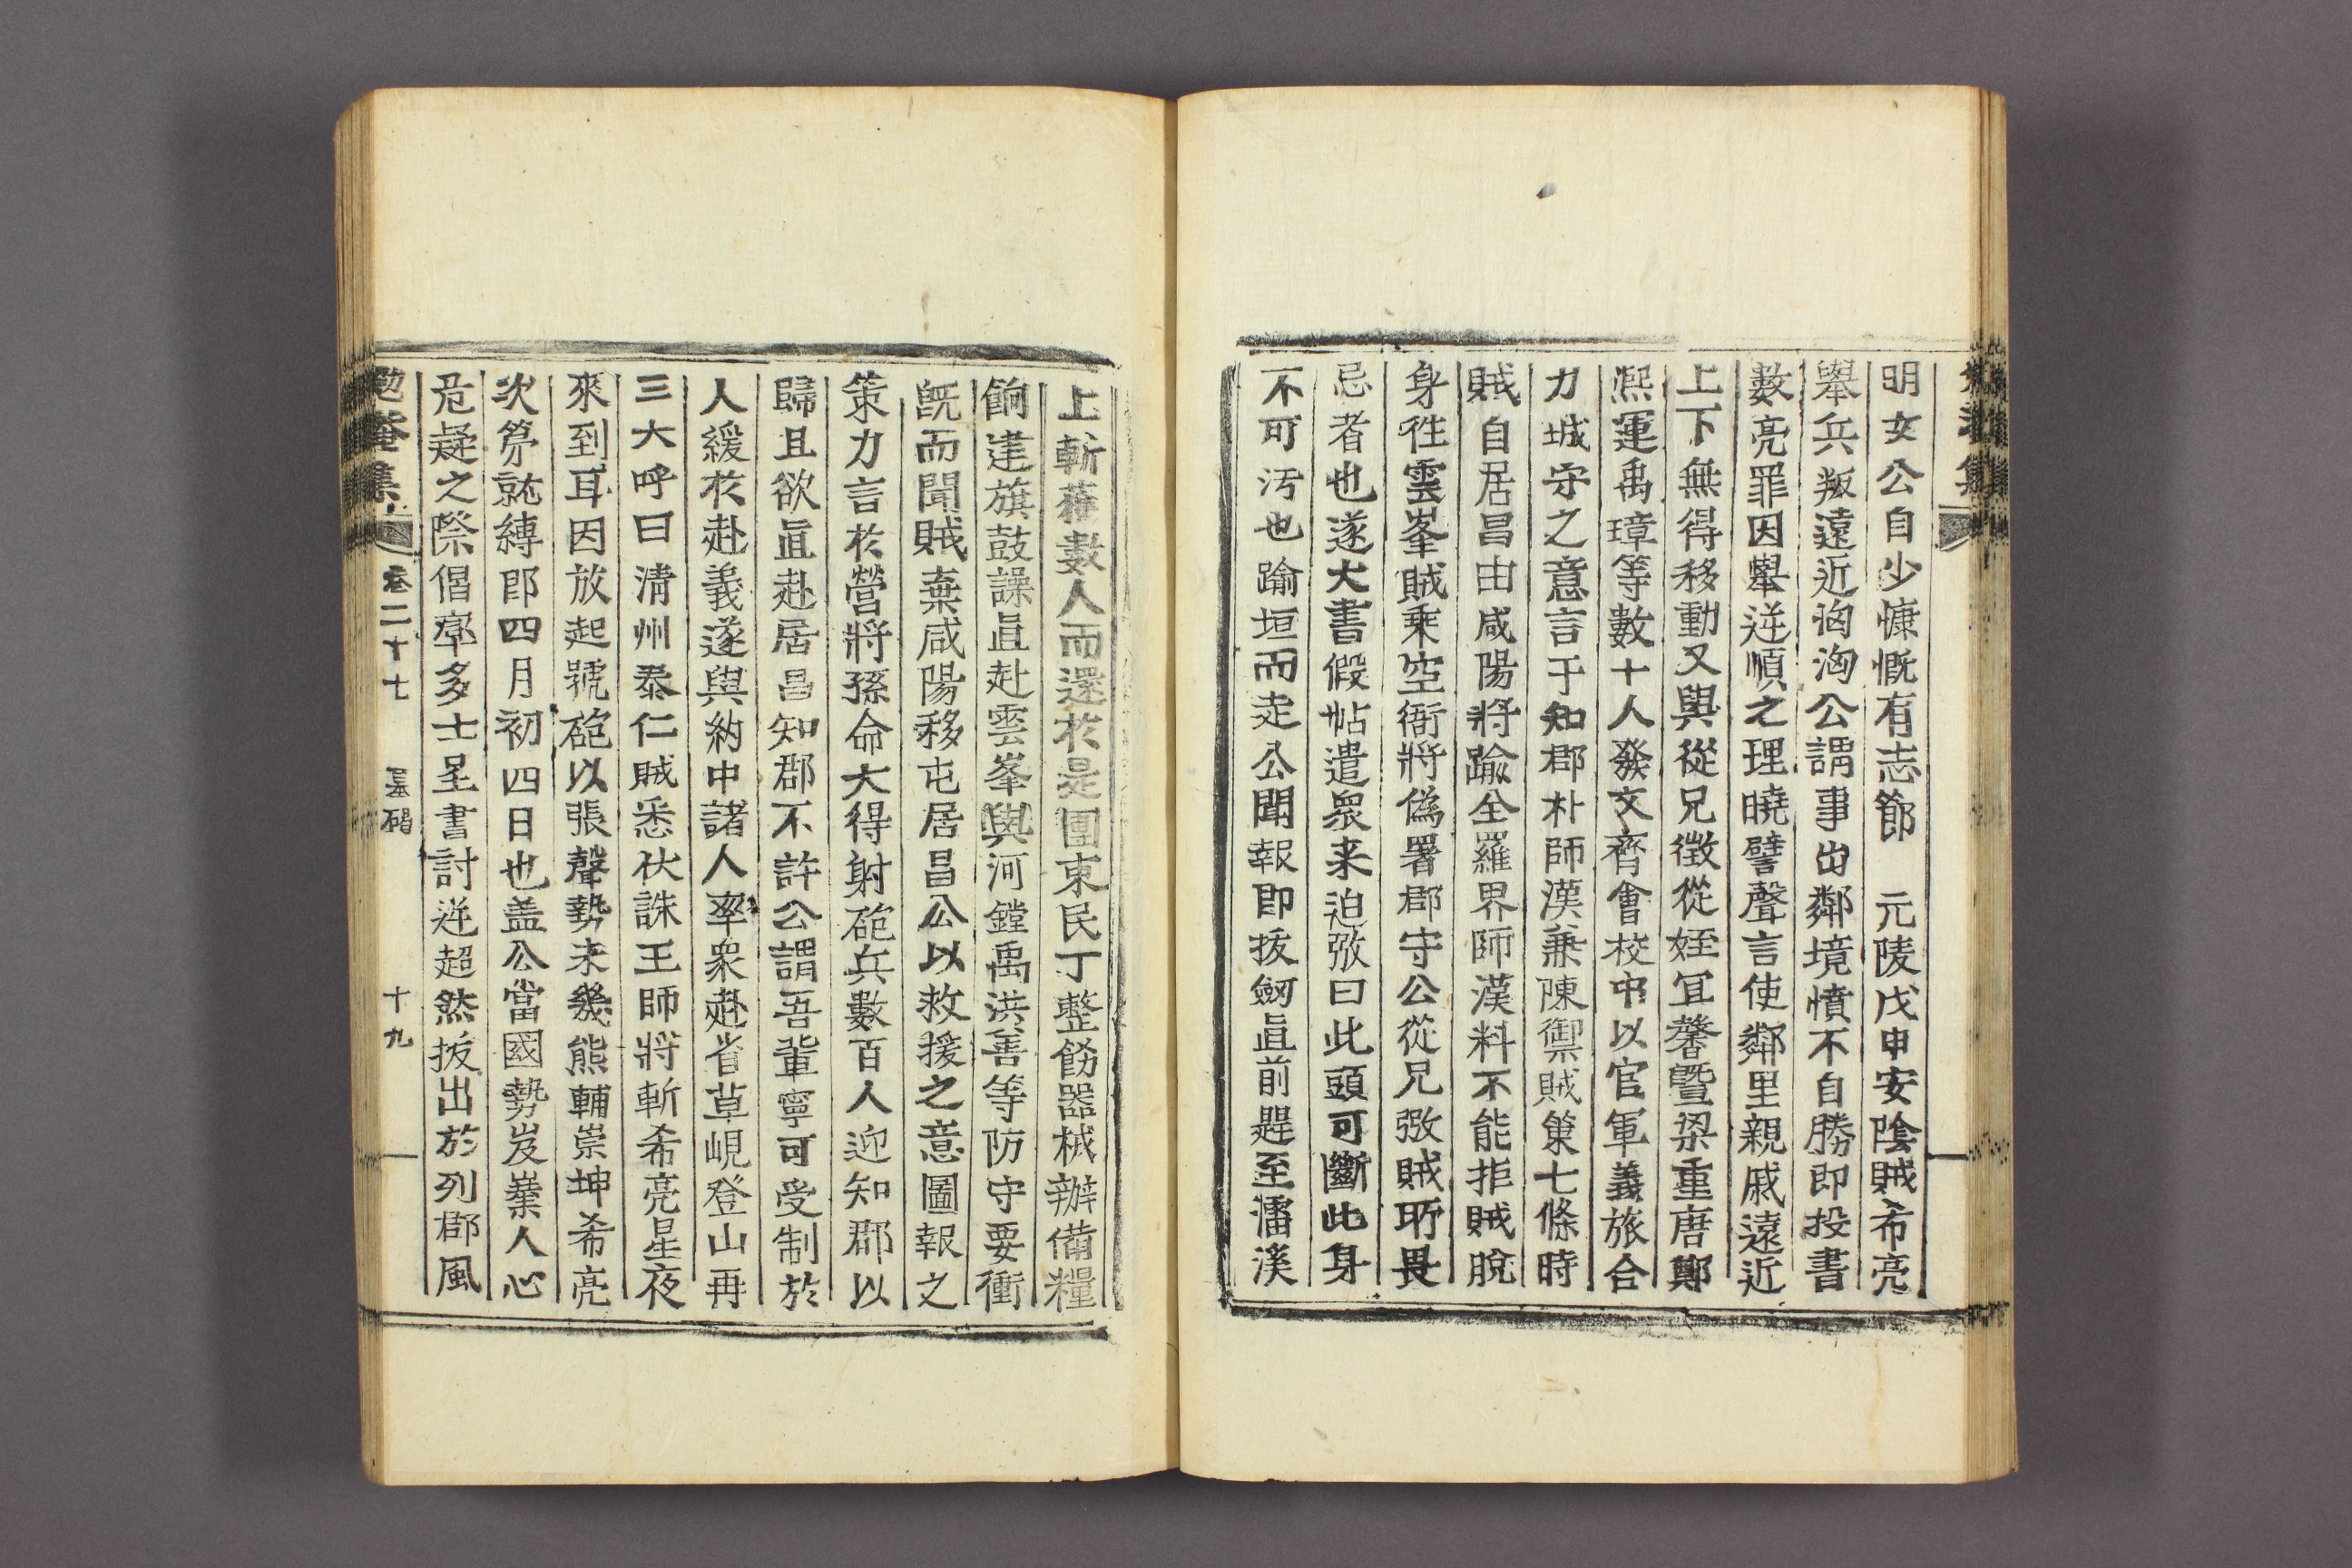 明女公自少慷慨有志節　元陵戊申安陰賊希亮
擧兵叛遠近洶洶公謂事出鄰境憤不自勝卽投書
數亮罪因擧逆順之理曉譬聲言使鄰里親戚遠近
上下無得移動又與從兄徵從姪冝馨曁梁重唐鄭
熙運禹璋等數十人發文齊會校中以官軍義旅合
力城守之意言于知郡朴師漢兼陳禦賊策七條時
賊自居昌由咸陽將踰全羅界師漢料不能拒賊脫
身徃雲峯賊乘空衙將僞署郡守公從兄弢賊所畏
忌者也遂大書假帖遣衆来迫弢曰此頭可斷此身
不可汚也踰垣而走公聞報卽拔劒直前趕至潘溪
上斬蕹數人而還於是團束民丁整飭器械辦備糧
餉建旗鼓譟直赴雲峯與河鏜禹洪善等防守要衝
旣而聞賊棄咸陽移屯居昌公以救援之意圖報之
策力言於營將孫命大得射砲兵數百人迎知郡以
歸且欲直赴居昌知郡不許公謂吾輩寧可受制於
人緩於赴義遂與納中諸人率衆赴省草峴登山再
三大呼曰淸州泰仁賊悉伏誅王師將斬希亮星夜
來到耳因放起號砲以張聲勢未幾熊輔崇坤希亮
次第就縛卽四月初四日也盖公當國勢岌嶪人心
危疑之際倡率多士呈書討逆超然拔出於列郡風
勉菴集 卷二十七 墓碣 十九